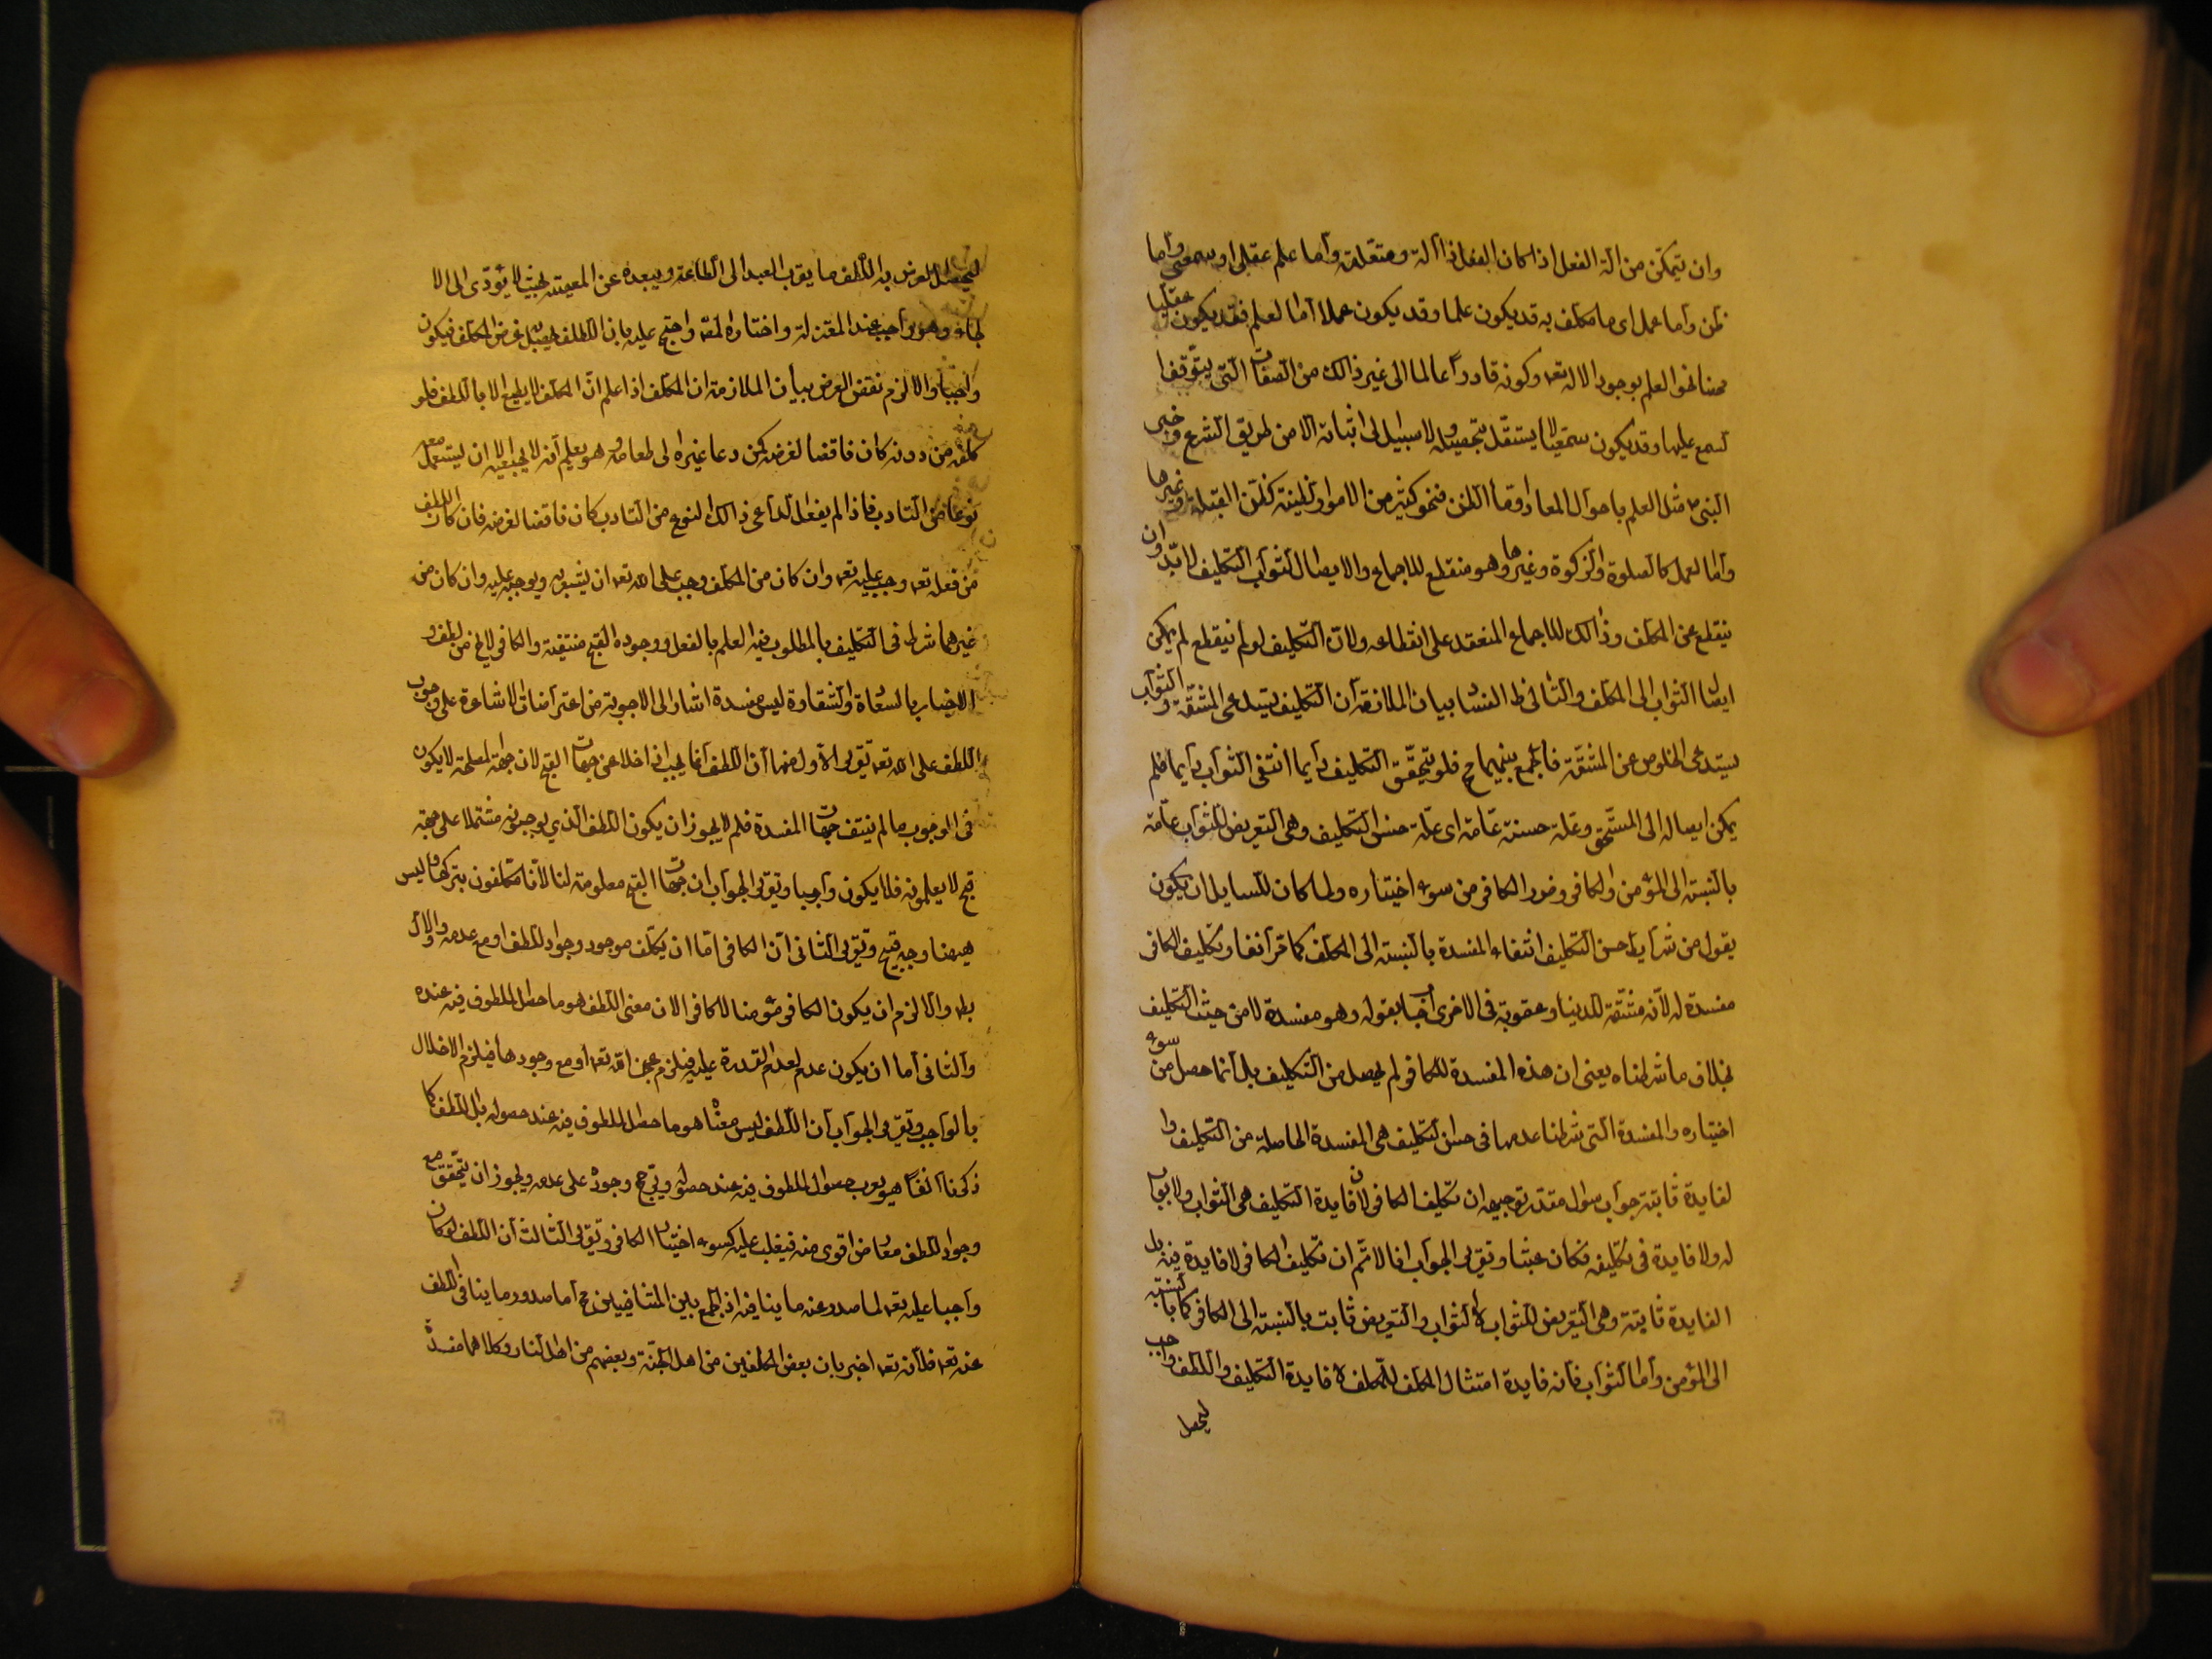 وان يتمكن من الة الفعل اذا كان الفعل ذا آلة ومتعلقه واما علم عقلى او سمعى واما
ظن واما عمل اى ما مكلف به قد يكون علما وقد يكون عملا اما العلم فقد يكون عقليا
محضا نحو العلم بوجود الاله تعه وكونه قادرا عالما الى غير ذالك من الصفات التى يتوقف
السمع عليها وقد يكون سمعيا لا يستقل بتحصيله ولا سبيل الى اثباته الا من طريق الشرع وخبر
النبى مثل العلم باحوال المعاد وقا الظن فنحو كثير من الامور وظنية كظن القبلة وغيرها
واما العمل كالصلوة والزكوة وغيرها وهو منقطع للاجماع والايصال الثواب التكليف لا بد وان
ينقطع عن المكلف وذالك للاجماع المنعقد على انقطاعه ولان التكليف لو لم ينقطع لم يمكن
ايصال الثواب الى المكلف والتالى ظ الفساد بيان الملازمة ان التكليف يستدعى المشقة والثواب
يستدعى الخلوص عن المشقة فالجمع بينهما مح فلو تحقق التكليف دايما انتفى الثواب دايما فلم
يمكن ايصاله الى المستحق وعلة حسنه عامة اى علة حسن التكليف وهى التعريض للثواب عامة
بالنسبة الى المؤمن والكافر وضرر الكافر من سوء اختياره ولما كان للسايل ان يكون
يقول من شرايط حسن التكليف انتفاء المفسدة بالنسبة الى المكلف كما مر آنفا وتكليف الكافر
مفسدة له لانه مشقة للدنيا وعقوبة فى الاخرى اجاب بقوله وهو مفسدة لا من حيث التكليف
بخلاف ما شرطناه يعنى ان هذه المفسدة للكافر لم يحصل من التكليف بل انما حصل من سوء
اختياره والمفسدة التى شرطنا عدمها فى حسن التكليف هى المفسدة الحاصلة من التكليف وا
لفايدة ثابتة جواب سوال مقدر توجيهه ان تكليف الكافر لان فايدة التكليف هى الثواب ولا ثواب
له ولا فايدة فى تكليفه فكان عبثا وتقرير الجواب انا لا نم ان تكليف الكافر لا فايدة فيه بل
الفايدة ثابتة وهى التعريض للثواب لا الثواب والتعريض ثابت بالنسبة الى الكافر كما بالنسبة
الى المؤمن واما الثواب فانه فايدة امتثال المكلف للمكلف لا فايدة التكليف واللطف واجب
ليحصل
ليحصل الغرض به اللطف ما يقرب العبد الى الطاعة ويبعده عن المعصية بحيث لا يؤدى الى الا
لجاء وهو واجب عند المعتزلة واختاره المص واحتج عليه بان اللطف يحصل غرض المكلف فيكون
واجبا والا لزم نقض الغرض بيان الملازمة ان المكلف اذا علم ان المكلف لا يطيع الا باللطف فلو
كلفه من دونه كان ناقضا لغرضه كمن دعا غيره الى طعامه وهو يعلم انه لا يجيبه الا ان يستعمل معه
نوعا من التادب فاذا لم يفعل الداعى ذالك النوع من التادب كان ناقضا لغرضه فان كان اللطف
من فعله تعه وجب عليه تعه وان كان من المكلف وجب على الله تعه ان يشعر به ويوجبه عليه وان كان من
غيرهما شرط فى التكليف بالمطلوب فيه العلم بالفعل ووجوده القبح منتفية والكافر لا يخ من لطف و
الاخبار بالسعادة والشقاوة ليس مفسدة اشار الى الاجوبة من اعتراضات الاشاعرة على وجوب
اللطف على الله تعه تقرير الاول منها ان اللطف انما يجب اذا خلا عن جهات القبح لان جهة المصلحة لا يكون
فى الوجوب ما لم ينتف جهات المفسدة فلم لا يجوز ان يكون اللطف الذى يوجبونه مشتملا على جهة
قبح لا يعلمونه فلا يكون واجبا وتقرير الجواب ان جهات القبح معلومة لنا لانا مكلفون بتركها وليس
هيهنا وجه قبح وتقرير الثانى ان الكافر اما ان يكلف موجود وجود اللطف او مع عدمه والاول
بط والا لزم ان يكون الكافر مؤمنا لا كافرا لان معنى اللطف هو ما حصل الملطوف فيه عنده
والثانى اما ان يكون عدمه لعدم القدرة عليه فيلزم عجز الله تعه او مع وجودها فيلزم الاخلال
بالواجب وتقرير الجواب ان اللطف ليس معناه هو ما حصل الملطوف فيه عند حصوله بل اللطف كما
ذكرنا آنفا هو يقرب حصول الملطوف فيه عند حصوله ويرجح وجوده على عدمه ويجوز ان يتحقق مع
وجود اللطف معارض اقوى منه فيغلب عليه كسوء اختيار الكافر وتقرير الثالث ان اللطف لو كان
واجبا عليه تعه لما صدر عنه ما ينافيه اذ الجمع بين المتنافيين مح اما صدور ما ينافى اللطف
عنه تعه فلانه تعه اخبر بان بعض المكلفين من اهل الجنة وبعضهم من اهل النار وكلاهما مفسدة